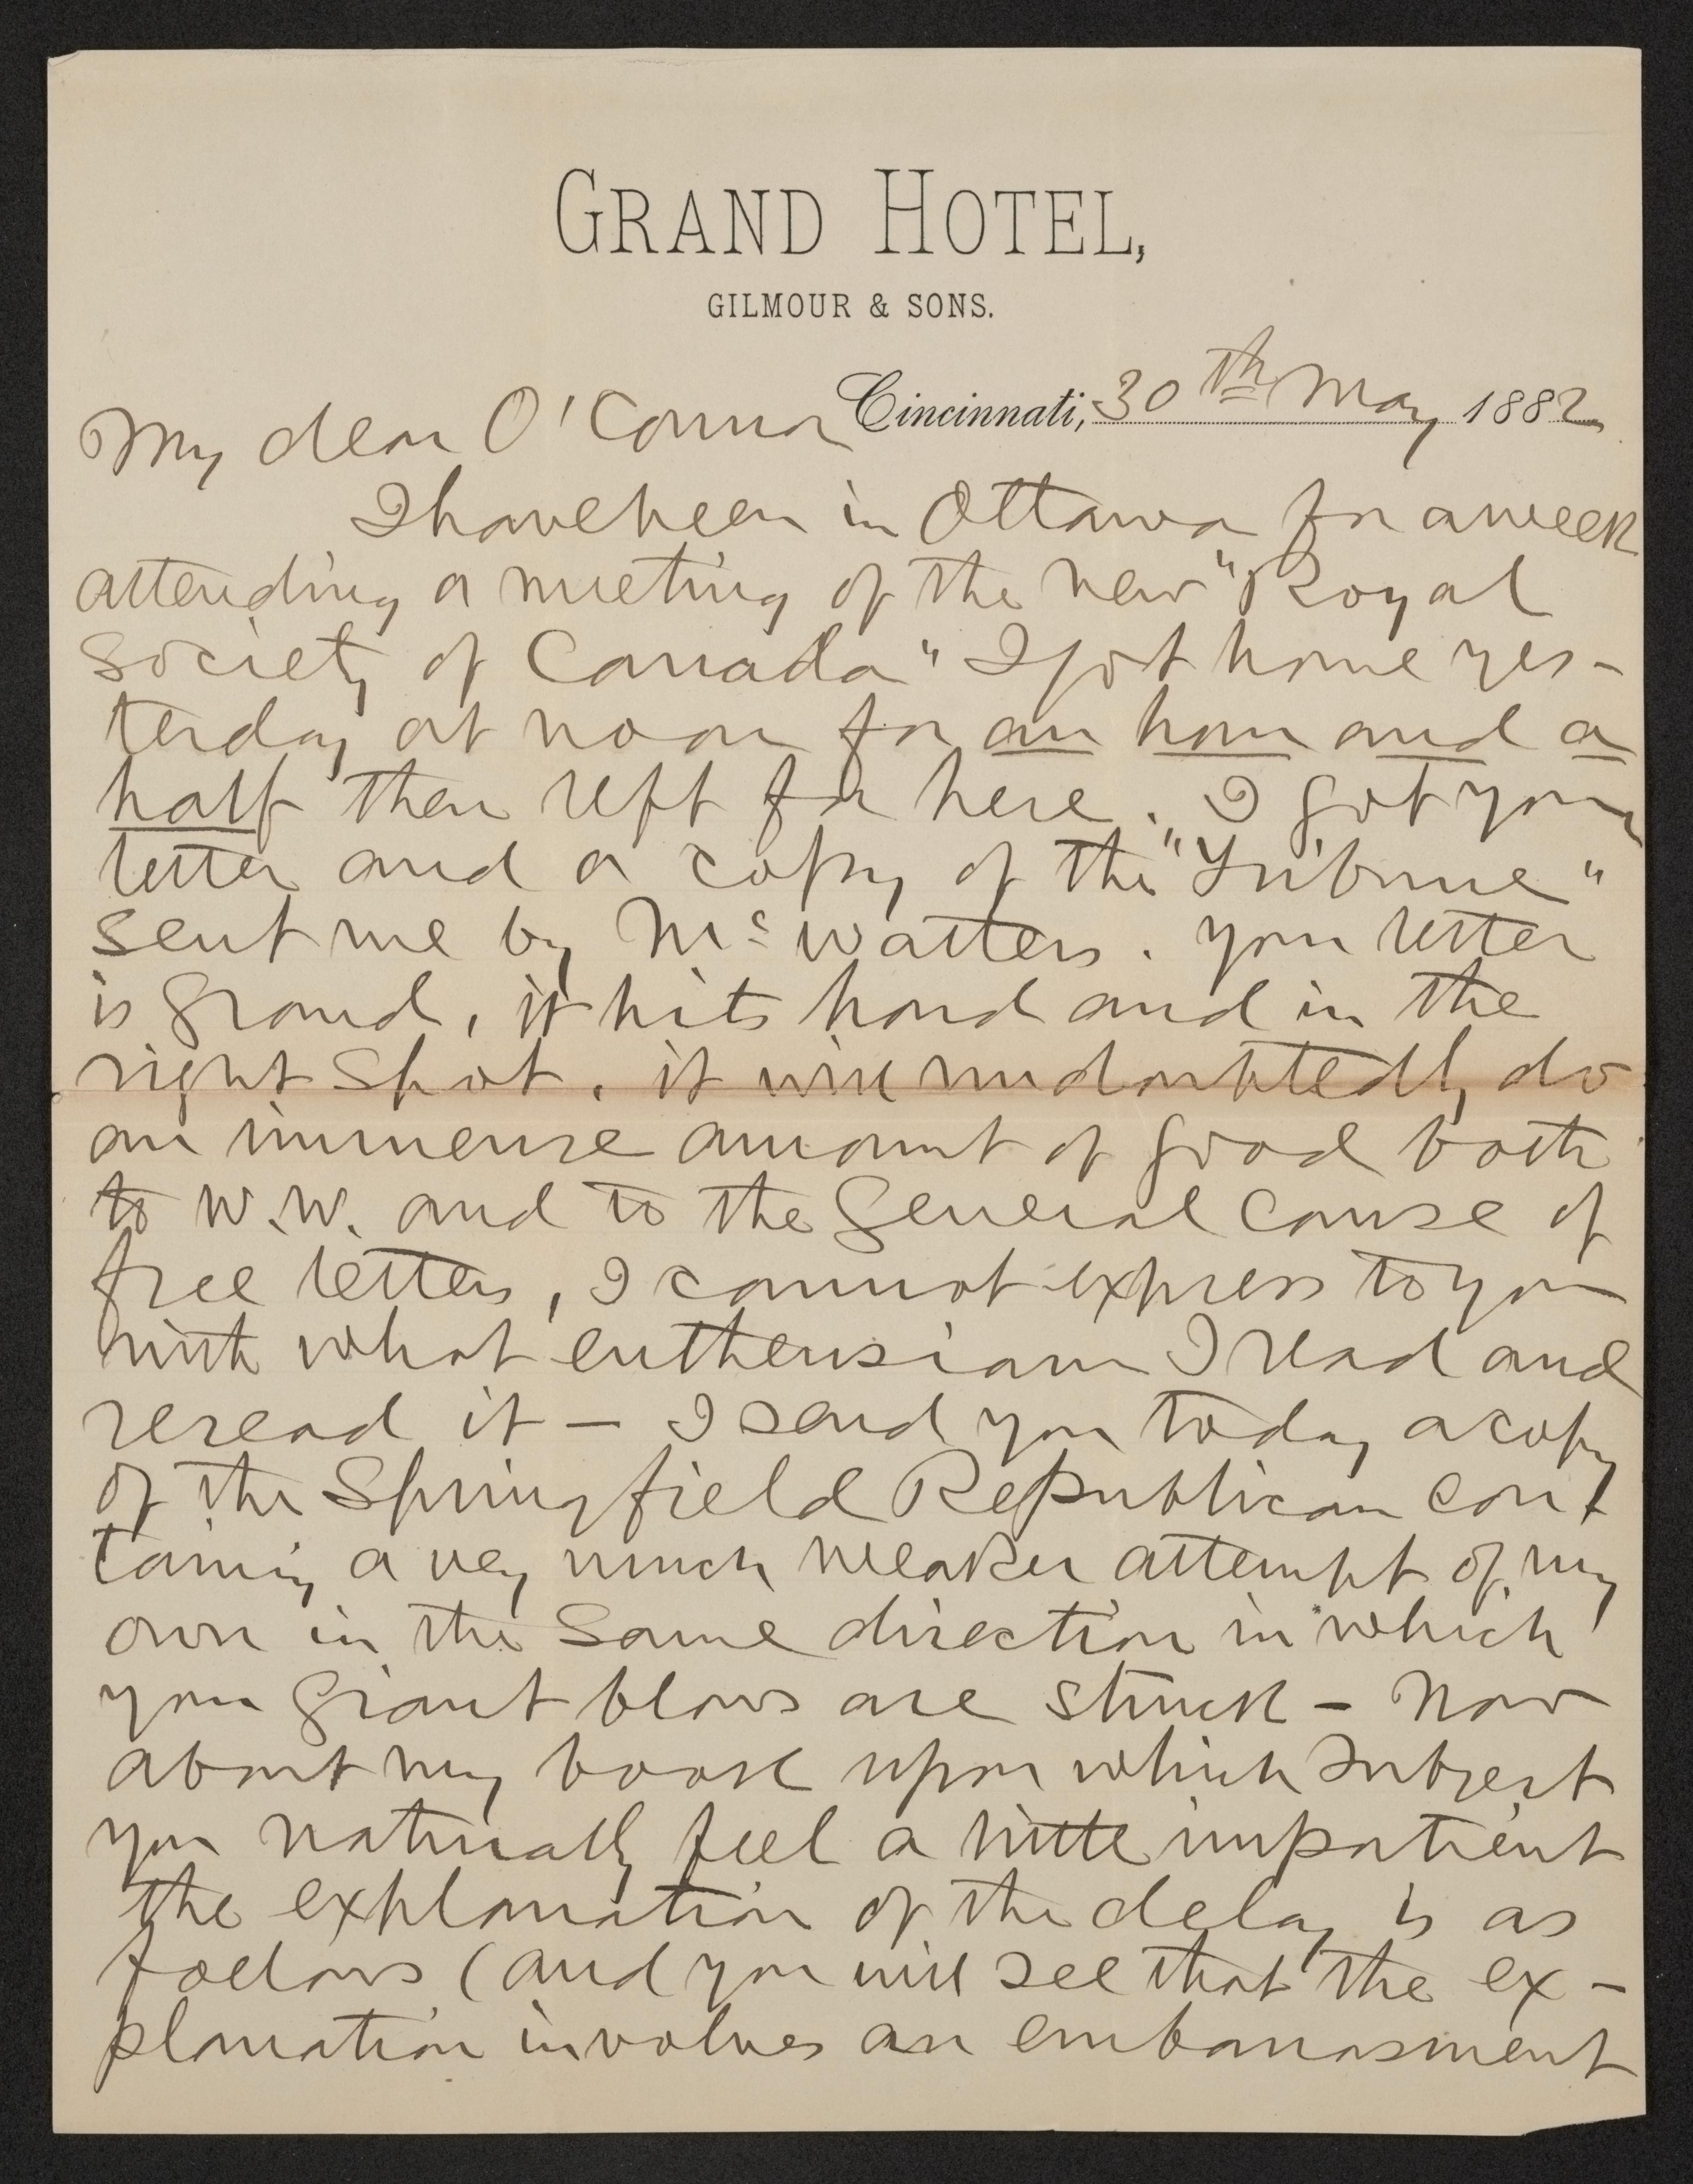 GRAND HOTEL,
GILMOUR & SONS.
Cincinnati, 30th May 1882
My dear O'Connor
I have been in Ottawa for a week
attending a meeting of the new "Royal
Society of Canada" I got home yes-
terday at noon for an hour and a
half then left for here. I got your
letter and a copy of the "Tribune"
sent me by Mcwatters. your letter
is grand, it hits hard and in the
right spot, it will undoubtedly do
an immense amount of good both
to W.W. and to the general cause of
free letters, I cannot express to you
with what enthusiam I read and
reread it — I send you today a copy
of the Springfield Republican con
taining a very much weaker attempt of my
own in the same direction in which
your giant blows are struck - Now
about my book upon which subject
you naturally feel a little impatient
the explanation of the delay is as
follows (and you will see that the ex-
planation involves an embarrasment